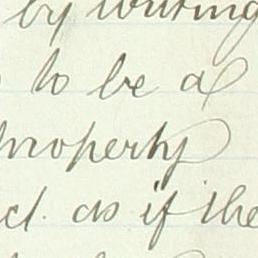 by writing
to be a
property
d. as if the